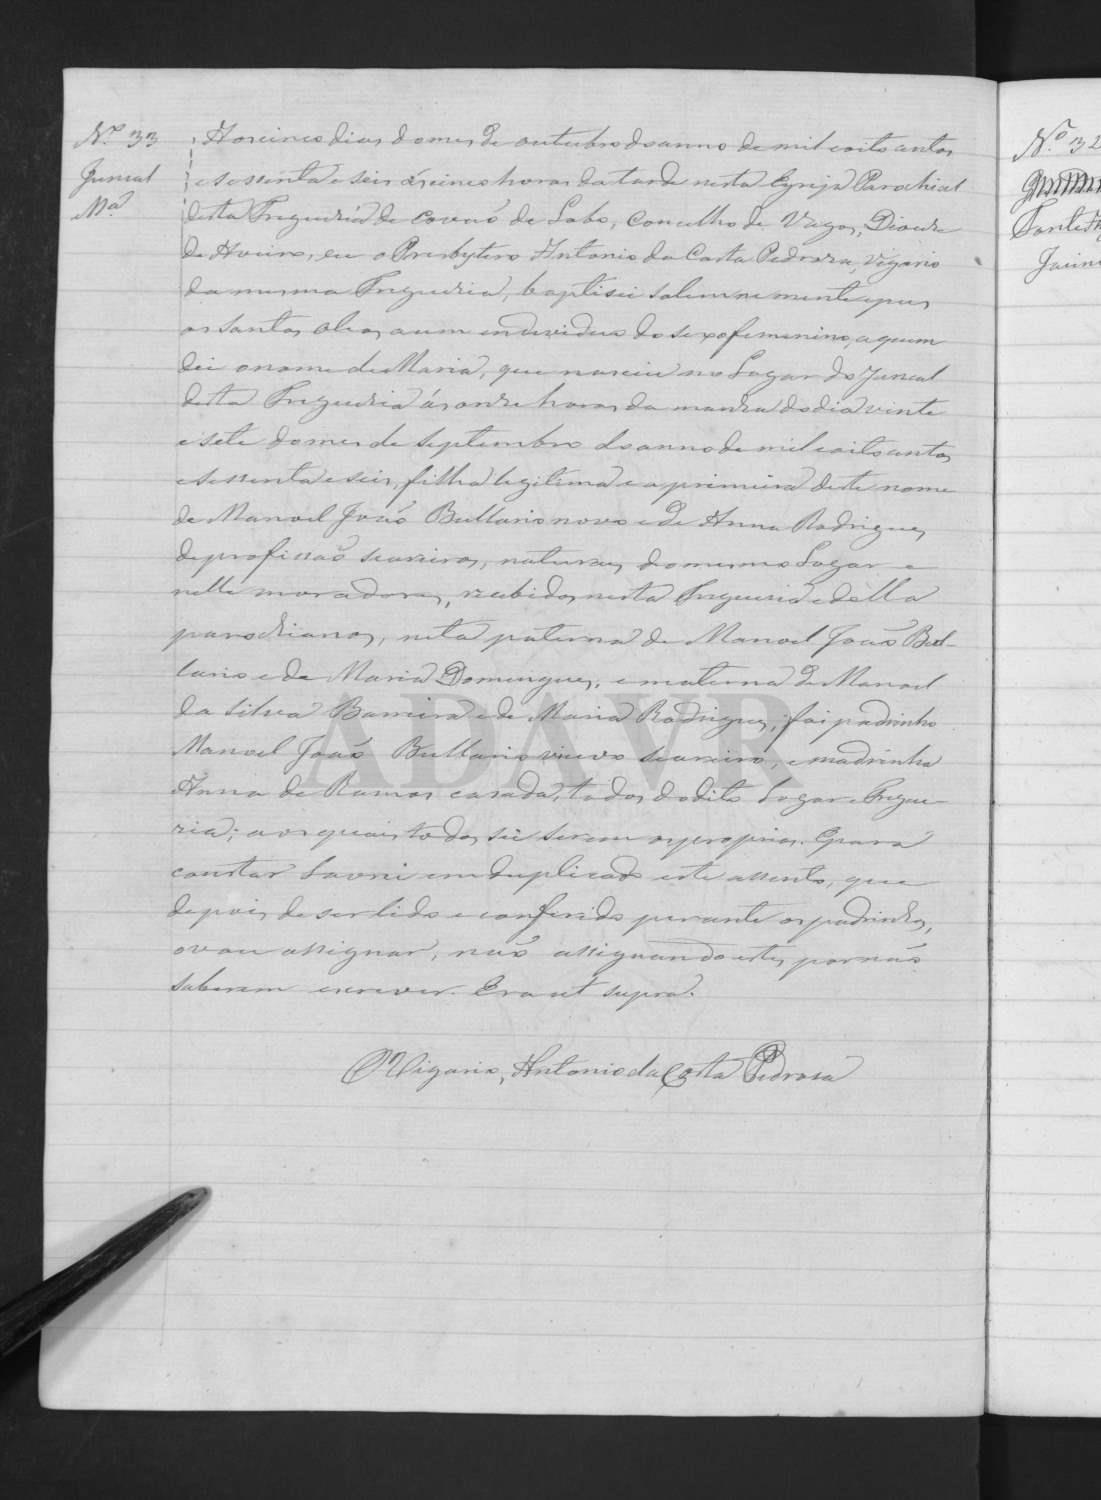 Nº 33
Juncal
Mª
Aos cinco dias do mes de outubro do anno de mil e oito centos
e sessenta e seis ás cinco horas da tarde nesta Egreja Parochial
desta Freguezia de Covaõ de Lobo, Concelho de Vagos, Diocese
de Aveiro, eu o Presbytero Antonio da Costa Pedroza, vigario
da mesma Freguezia, baptisei solemnemente e puz
os santos oleos a um individuo do sexo femenino, a quem
dei o nome de Maria, que nasceu no Logar do Juncal
desta Freguezia ás onze horas da manhã do dia vinte
e sete do mes de septembro do anno de mil e oito centos
e sessenta e seis, filha legitima e a primeira deste nome
de Manoel Joaõ novo e de Anna Rodrigues
de profissaõ seareiros, naturaes do mesmo Logar e
nelle moradores, recebidos nesta Freguezia e della
parochianos, neta paterna de Manoel Joaõ
e de Maria Domingues, e materna de Manoel
da Silva e de Maria Rodrigues; foi padrinho
Manoel Joaõ viuvo seareiro, e madrinha
Anna de Ramos casada, todos do dito Logar e Fregue-
zia; aos quaes todos sei serem os proprios. E para
constar Lavrei em duplicado este assento, que
depois de ser lido e conferido perante os padrinhos,
o vou assignar, naõ assignando estes por naõ
saberem escrever. Era ut supra.
O Vigario, Antonio da Costa Pedrosa
ADAVR
Nº 32